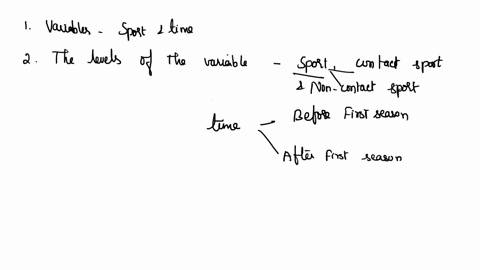 1. Variables - Sport & time
2. The levels of the variable - Sport, contact sport
& Non-contact sport
time - Before First season
After First season